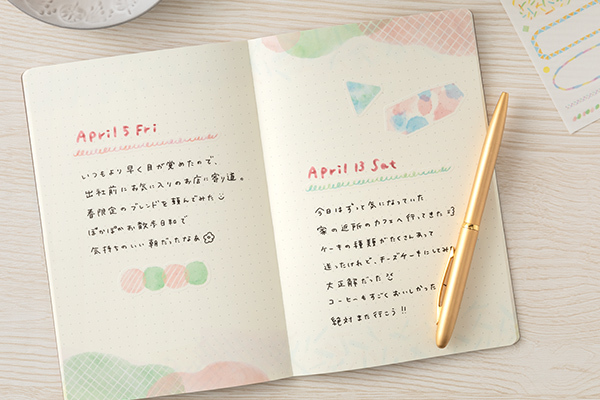 April 5 Fri
いつもより早く目が覚めたので、
出社前にお気に入りのお店に寄り道。
春限定のブレンドを頼んでみた
ぽかぽかお散歩日和で
気持ちのいい朝だったなぁ
April 13 Sat
今日はずっと気になっていた
家の近所のカフェへ行ってきた
ケーキの種類がたくさんあって
迷ったけれど、チーズケーキにしてみた
大正解だった
コーヒーもすごくおいしかった
絶対また行こう!!